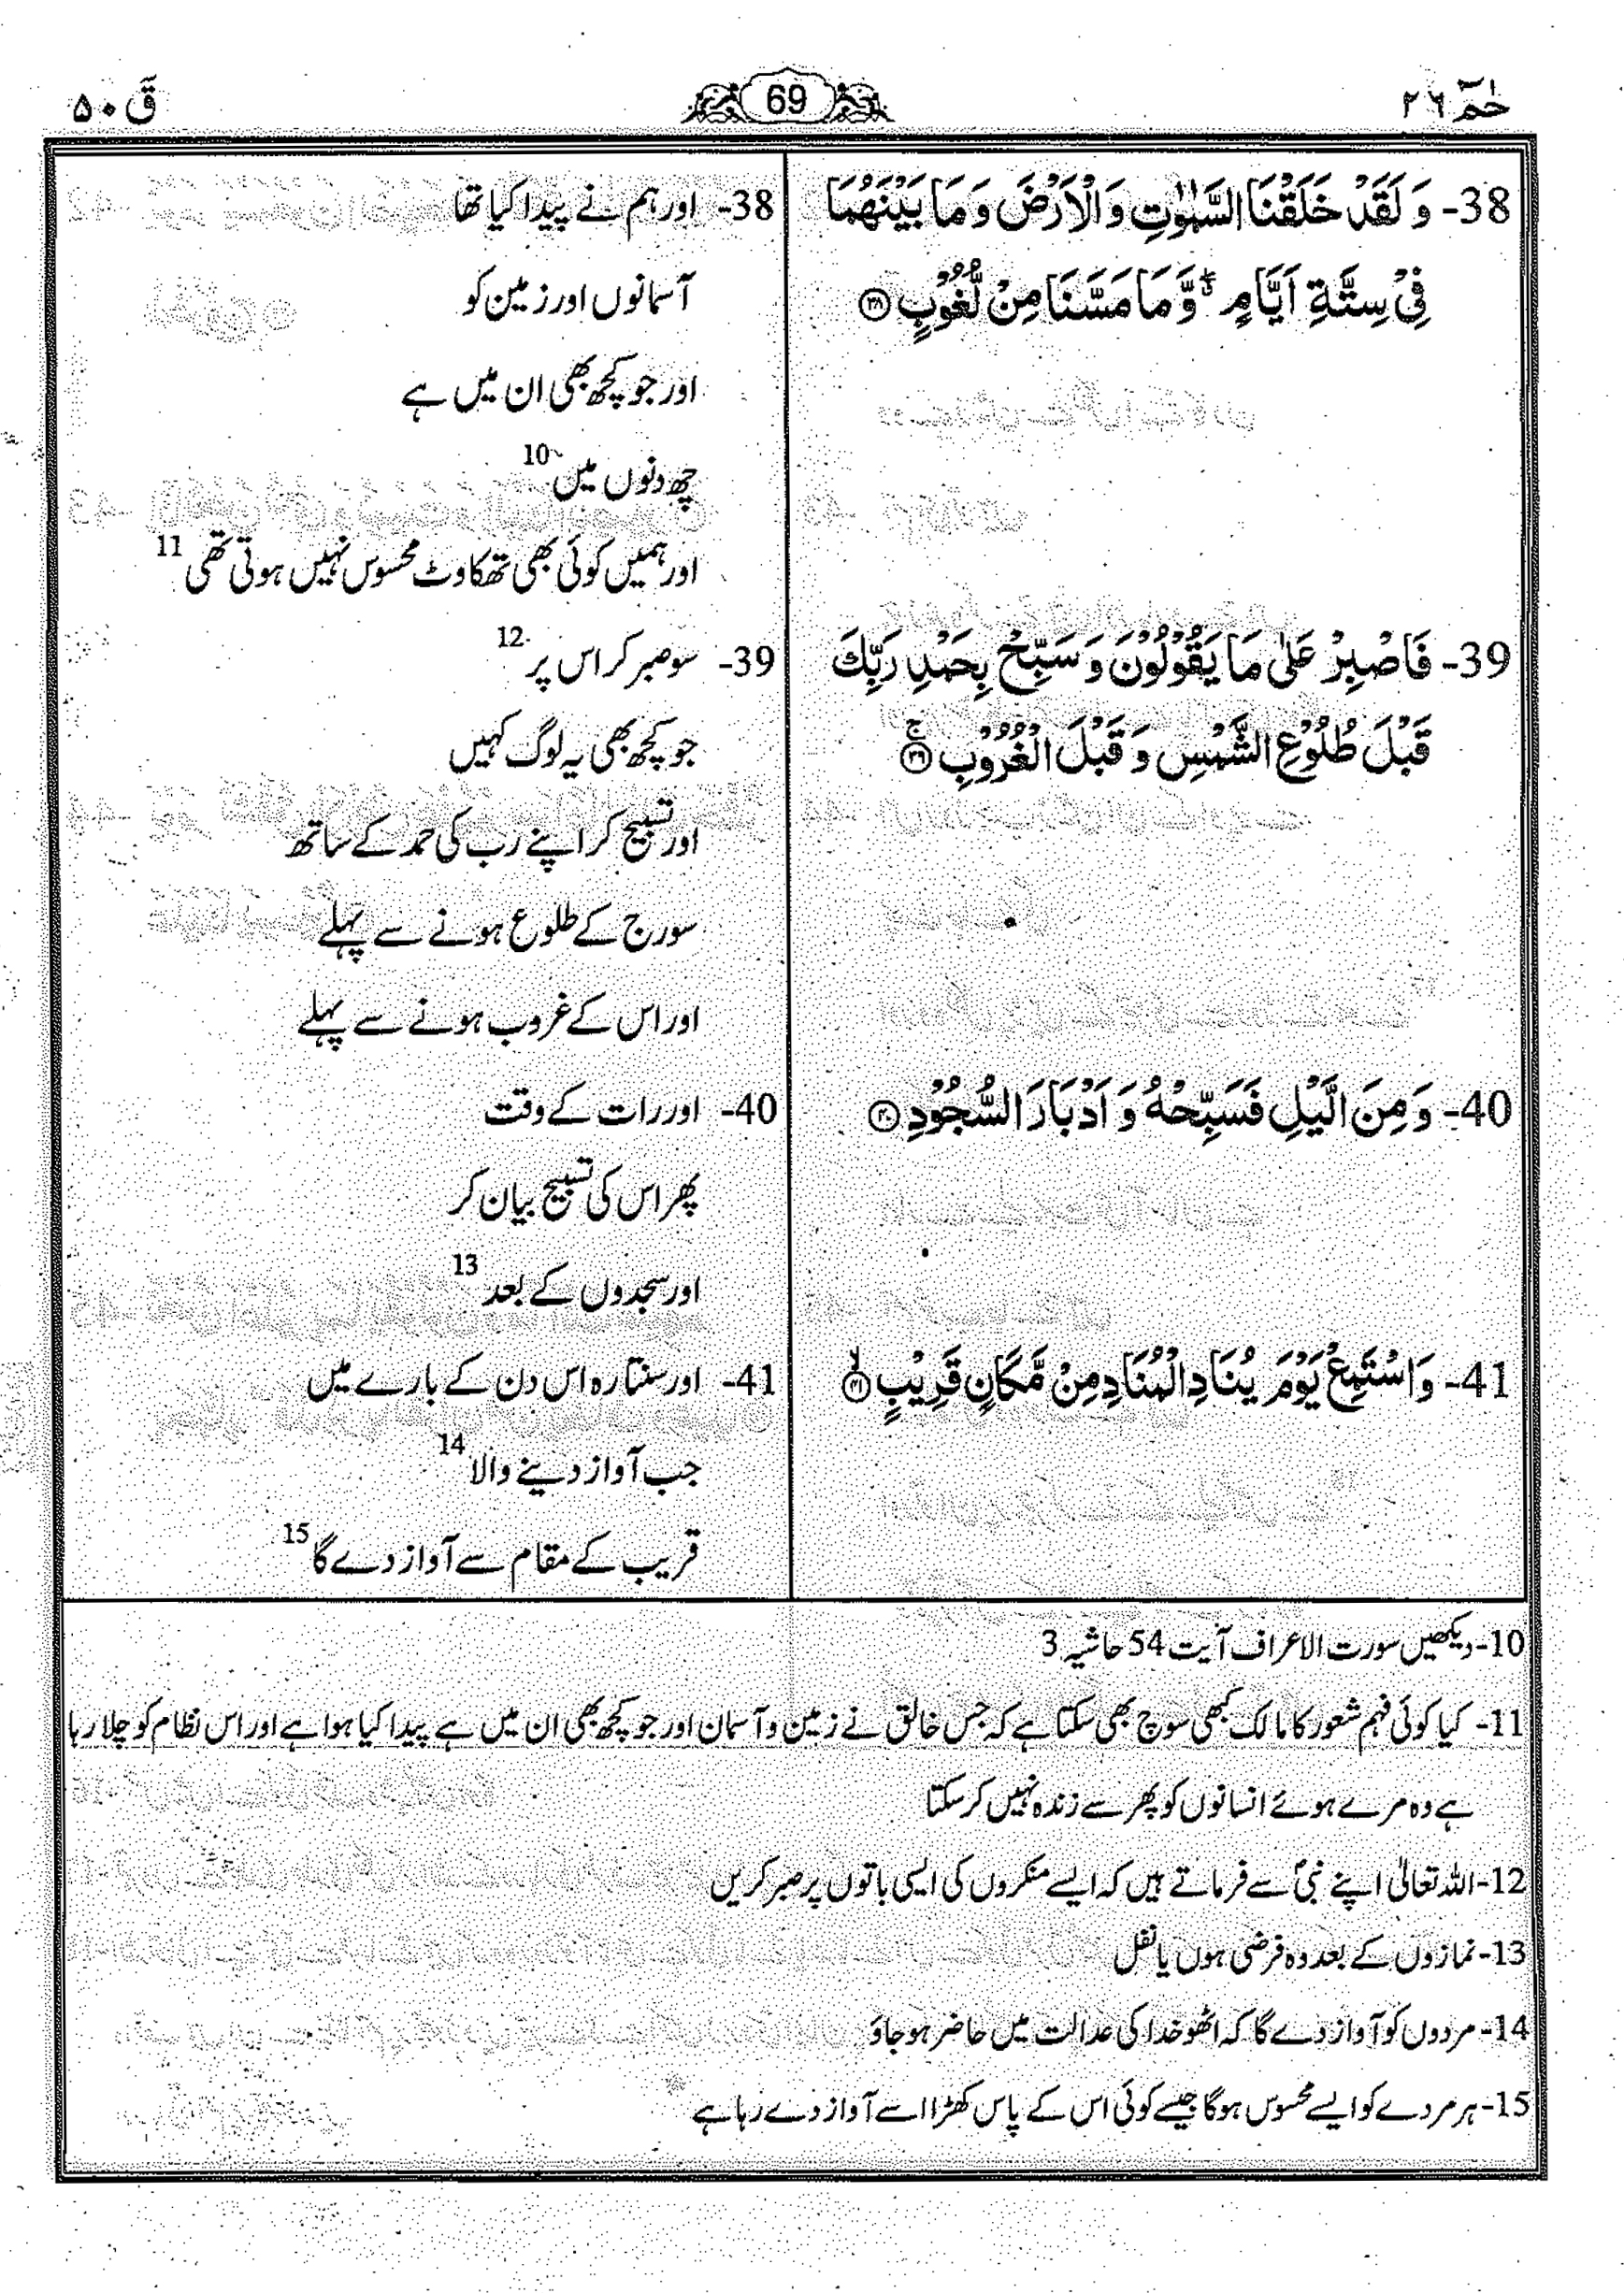 حٰمٓ ۲۶
69
قٓ ۵۰
38- وَ لَقَدْ خَلَقْنَا السَّمٰوٰتِ وَ الْاَرْضَ وَ مَا بَيْنَهُمَا
فِيْ سِتَّةِ اَيَّامٍ ۖ وَّ مَا مَسَّنَا مِنْ لُّغُوْبٍ ﴿۳۸﴾
38- اور ہم نے پیدا کیا تھا
آسمانوں اور زمین کو
اور جو کچھ بھی ان میں ہے
چھ دنوں میں 10
اور ہمیں کوئی بھی تھکاوٹ محسوس نہیں ہوتی تھی 11
39- فَاصْبِرْ عَلٰى مَا يَقُوْلُوْنَ وَ سَبِّحْ بِحَمْدِ رَبِّكَ
قَبْلَ طُلُوْعِ الشَّمْسِ وَ قَبْلَ الْغُرُوْبِ ۚ﴿۳۹﴾
39- سو صبر کر اس پر 12
جو کچھ بھی یہ لوگ کہیں
اور تسبیح کر اپنے رب کی حمد کے ساتھ
سورج کے طلوع ہونے سے پہلے
اور اس کے غروب ہونے سے پہلے
40- وَ مِنَ الَّيْلِ فَسَبِّحْهُ وَ اَدْبَارَ السُّجُوْدِ ﴿۴۰﴾
40- اور رات کے وقت
پھر اس کی تسبیح بیان کر
اور سجدوں کے بعد 13
41- وَاسْتَمِعْ يَوْمَ يُنَادِ الْمُنَادِ مِنْ مَّكَانٍ قَرِيْبٍ ۙ﴿۴۱﴾
41- اور سنتا رہ اس دن کے بارے میں
جب آواز دینے والا 14
قریب کے مقام سے آواز دے گا 15
10- دیکھیں سورت الاعراف آیت 54 حاشیہ 3
11- کیا کوئی فہم شعور کا مالک کبھی سوچ بھی سکتا ہے کہ جس خالق نے زمین و آسمان اور جو کچھ بھی ان میں ہے پیدا کیا ہوا ہے اور اس نظام کو چلا رہا
ہے وہ مرے ہوئے انسانوں کو پھر سے زندہ نہیں کر سکتا
12- اللہ تعالیٰ اپنے نبیؐ سے فرماتے ہیں کہ ایسے منکروں کی ایسی باتوں پر صبر کریں
13- نمازوں کے بعد وہ فرضی ہوں یا نفل
14- مردوں کو آواز دے گا کہ اٹھو خدا کی عدالت میں حاضر ہو جاؤ
15- ہر مردے کو ایسے محسوس ہوگا جیسے کوئی اس کے پاس کھڑا اسے آواز دے رہا ہے